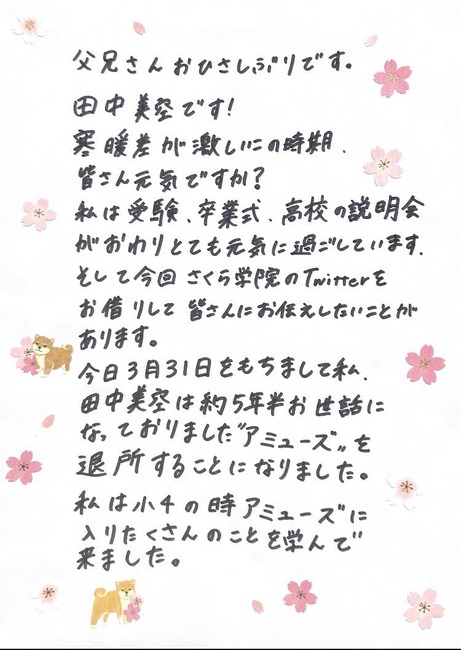 父兄さんおひさしぶりです。
田中美空です!
寒暖差が激しいこの時期、
皆さん元気ですか?
私は受験、卒業式、高校の説明会
がおわりとても元気に過ごしています。
そして今回さくら学院のTwitterを
お借りして皆さんにお伝えしたいことが
あります。
今日3月31日をもちまして私、
田中美空は約5年半お世話に
なっておりました"アミューズ"を
退所することになりました。
私は小4の時アミューズに
入りたくさんのことを学んで
来ました。